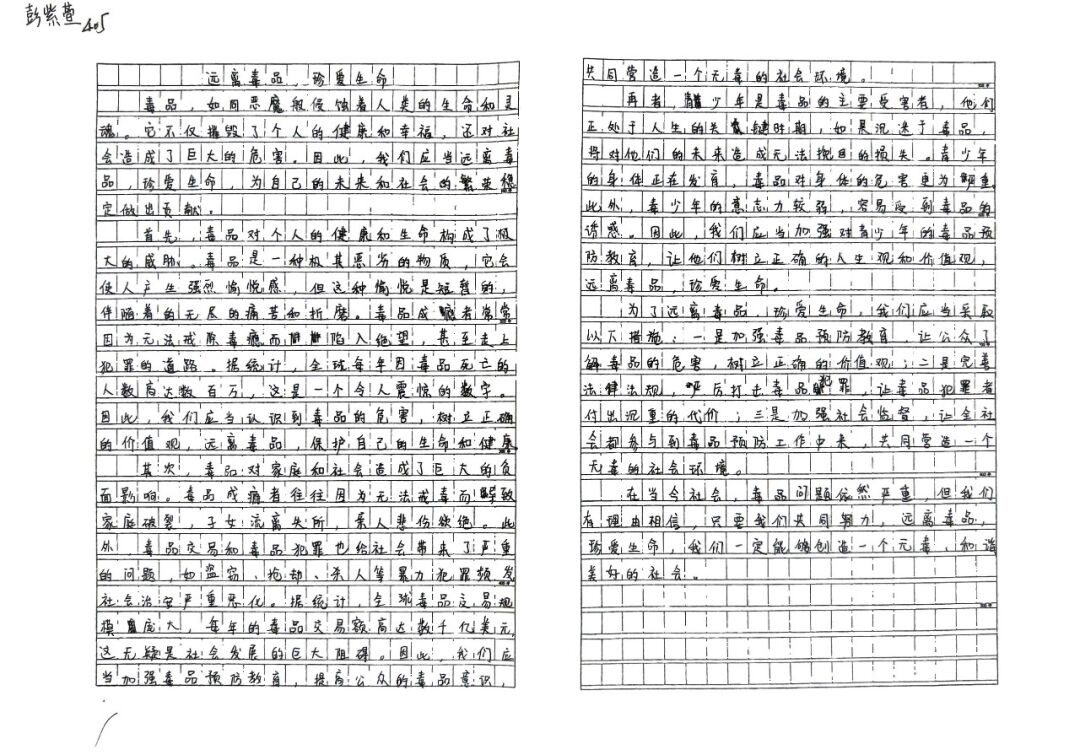 彭紫萱 405
远离毒品，珍爱生命
毒品，如同恶魔般侵蚀着人类的生命和灵
魂。它不仅摧毁了个人的健康和幸福，还对社
会造成了巨大的危害。因此，我们应当远离毒
品，珍爱生命，为自己的未来和社会的繁荣稳
定做出贡献。
首先，毒品对个人的健康和生命构成了极
大的威胁。毒品是一种极其恶劣的物质，它会
使人产生强烈愉悦感，但这种愉悦是短暂的，
伴随着的无尽的痛苦和折磨。毒品成瘾者常常
因为无法戒除毒瘾而陷入绝望，甚至走上
犯罪的道路。据统计，全球每年因毒品死亡的
人数高达数百万，这是一个令人震惊的数字。
因此，我们应当认识到毒品的危害，树立正确
的价值观，远离毒品，保护自己的生命和健康
其次，毒品对家庭和社会造成了巨大的负
面影响。毒品成瘾者往往因为无法戒毒而导致
家庭破裂，子女流离失所，亲人悲伤欲绝。此
外，毒品交易和毒品犯罪也给社会带来了严重
的问题，如盗窃、抢劫、杀人等暴力犯罪频发
社会治安严重恶化。据统计，全球毒品交易规
模庞大，每年的毒品交易额高达数千亿美元，
这无疑是社会发展的巨大阻碍。因此，我们应
当加强毒品预防教育，提高公众的毒品意识，
共同营造一个无毒的社会环境。
再者，青少年是毒品的主要受害者，他们
正处于人生的关键时期，如果沉迷于毒品，
将对他们的未来造成无法挽回的损失。青少年
的身体正在发育，毒品对身体的危害更为严重
此外，青少年的意志力较弱，容易受到毒品的
诱惑。因此，我们应当加强对青少年的毒品预
防教育，让他们树立正确的人生观和价值观，
远离毒品，珍爱生命。
为了远离毒品，珍爱生命，我们应当采取
以下措施：一是加强毒品预防教育，让公众了
解毒品的危害，树立正确的价值观；二是完善
法律法规，严厉打击毒品犯罪，让毒品犯罪者
付出沉重的代价；三是加强社会监督，让全社
会都参与到毒品预防工作中来，共同营造一个
无毒的社会环境。
在当今社会，毒品问题依然严重，但我们
有理由相信，只要我们共同努力，远离毒品，
珍爱生命，我们一定能够创造一个无毒、和谐
美好的社会。